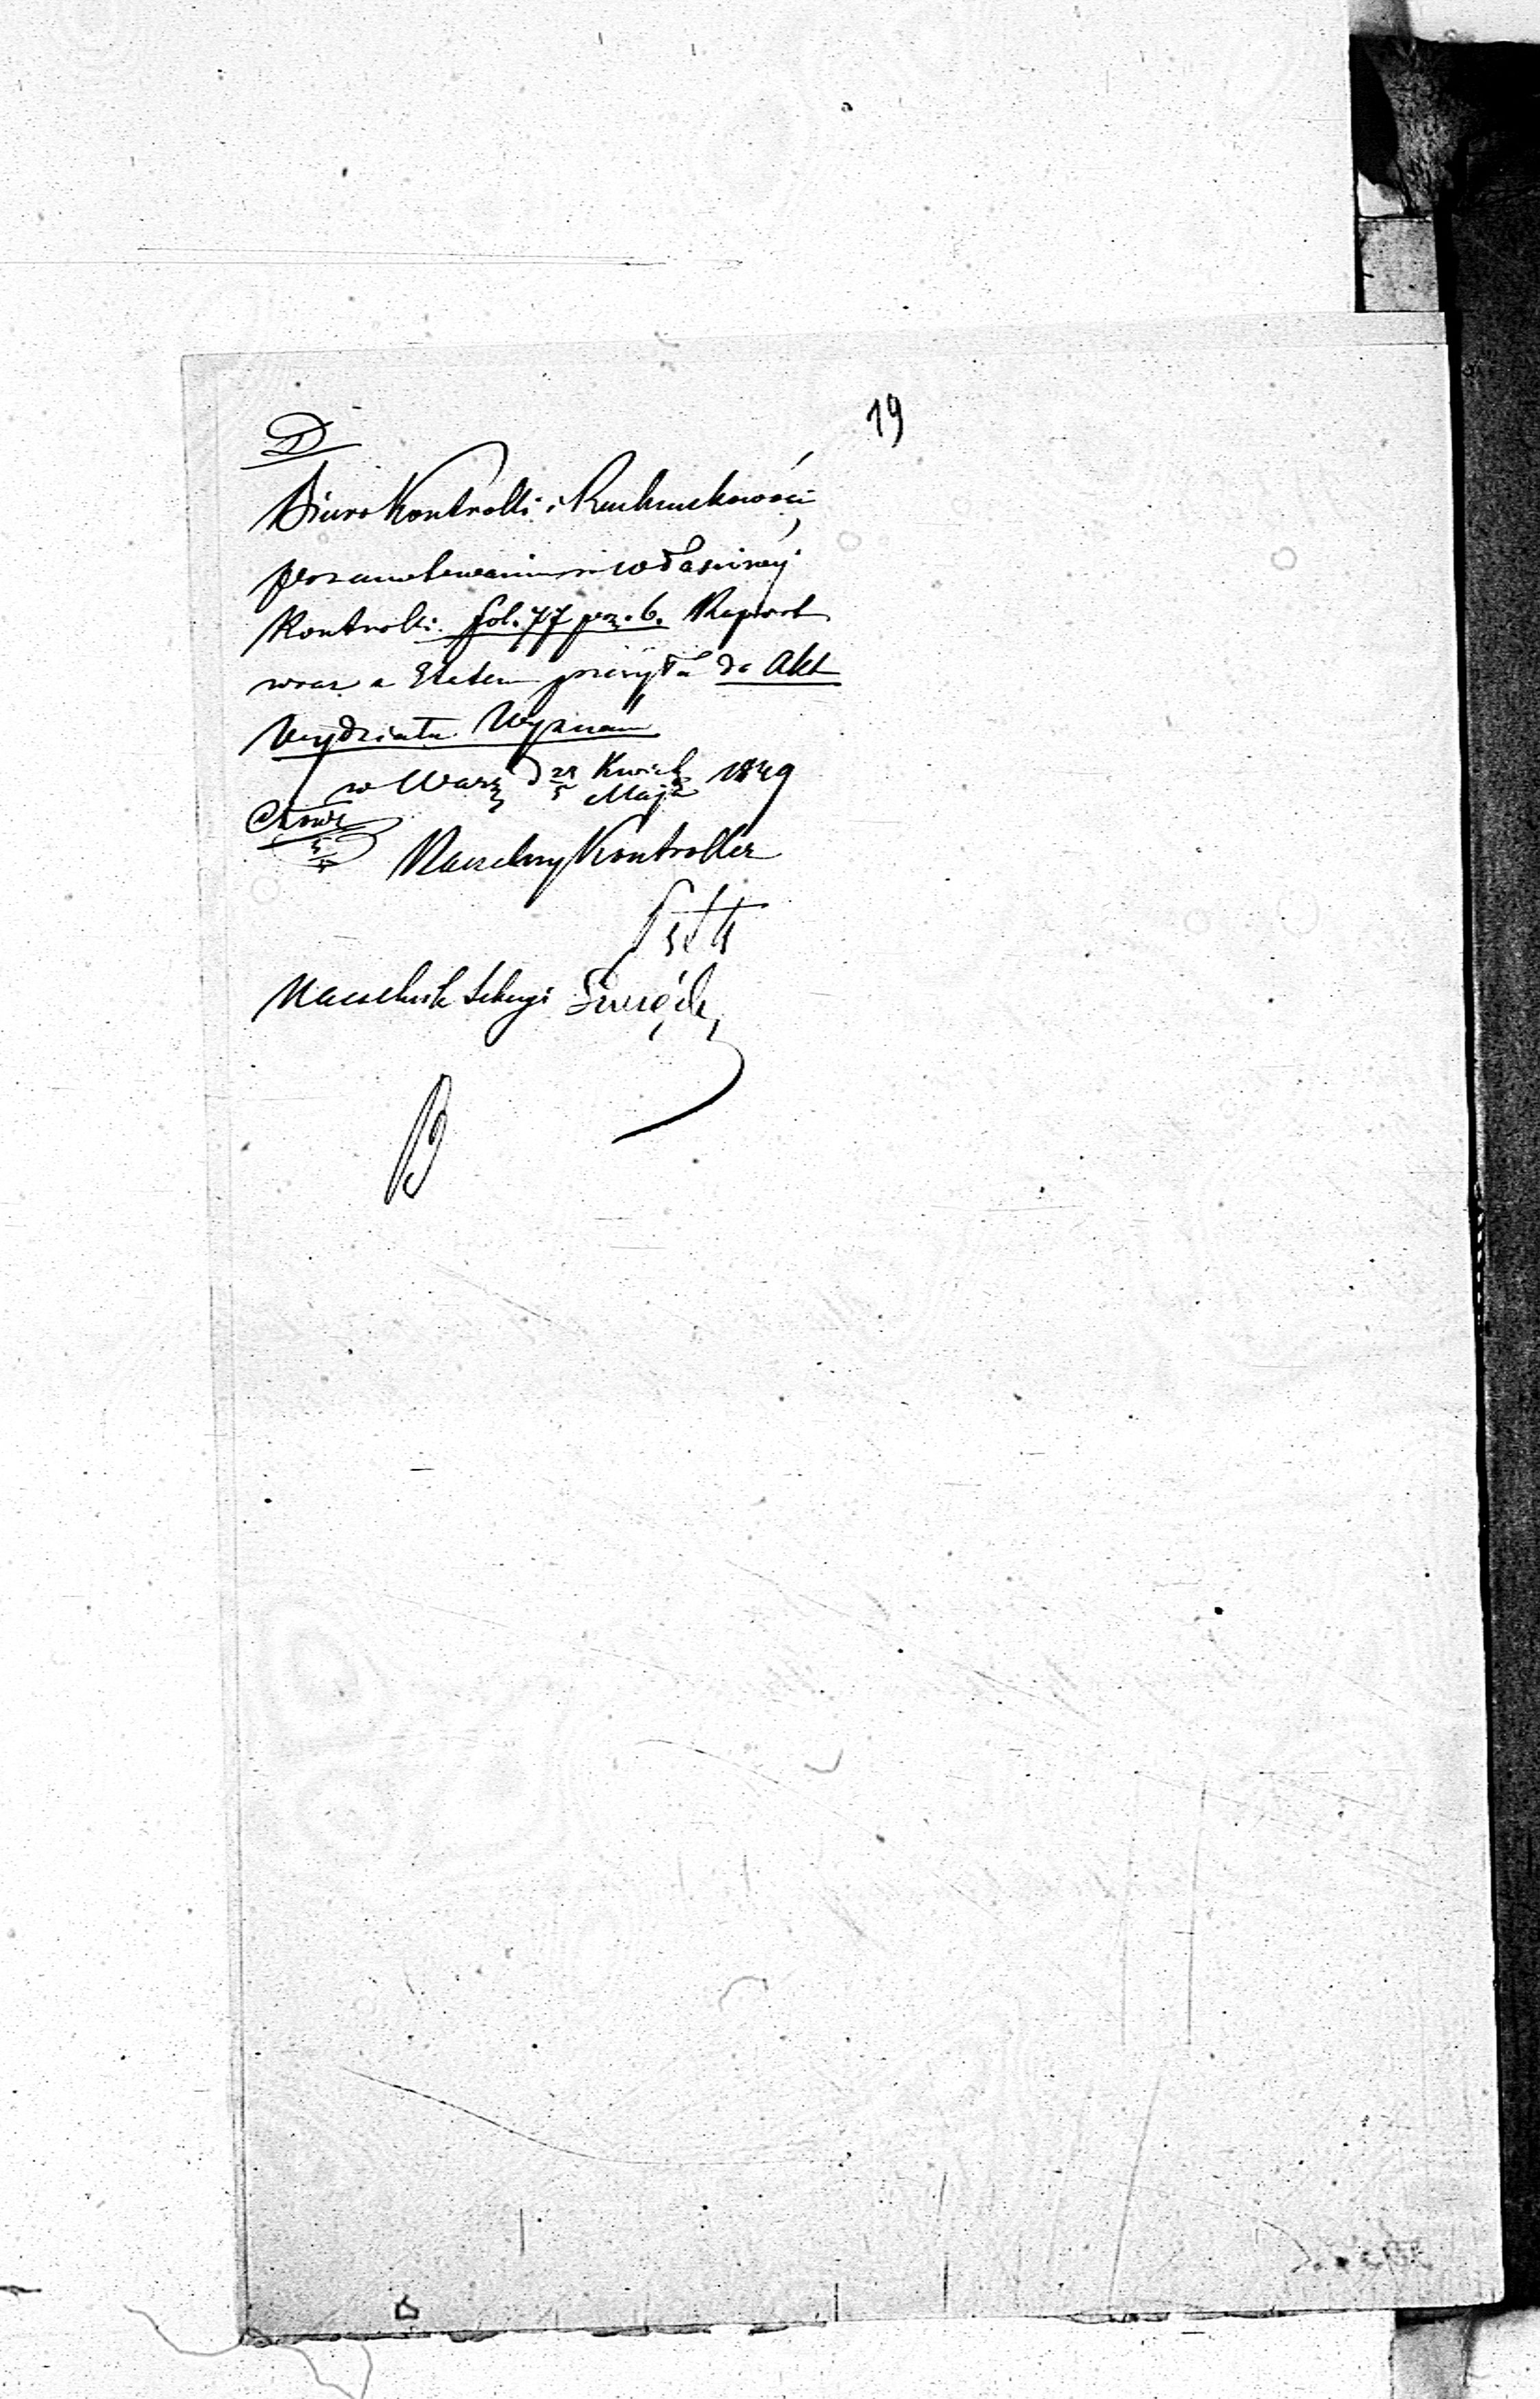 19
D
Biuro Kontrolli i Rachunkowości
po zanotowaniu w własciwéj
Kontrolli fol. 77 poz. 6. Raport
wraz z Etatem przesyła do Akt
Wydziału Wyznań
w Warz d 23/5 Kwiet/Maja 1849
Naczelny Kontroller
Naczelnik Sekcyi